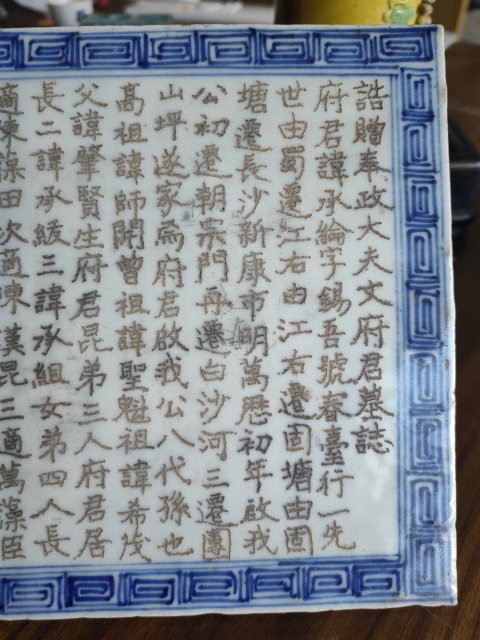 誥贈奉政大夫文府君墓誌
府君諱承綸字錫吾號春臺行一先
世由蜀遷江右由江右遷固塘由固
塘遷長沙新康市明萬歷初年啟我
公初遷朝宗門再遷白沙河三遷團
山坪遂家焉府君啟我公八代孫也
高祖諱師閑曾祖諱聖魁祖諱希茂
父諱肇賢生府君昆弟三人府君居
長二諱承綬三諱承組女弟四人長
適陳藻田次適陳漢昆三適萬藻臣